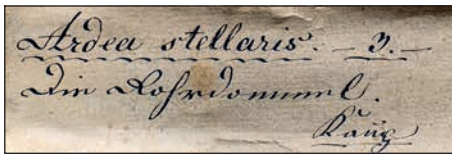 Ardea stellaris. – 3. –
Die Rohrdommel.
Kaup